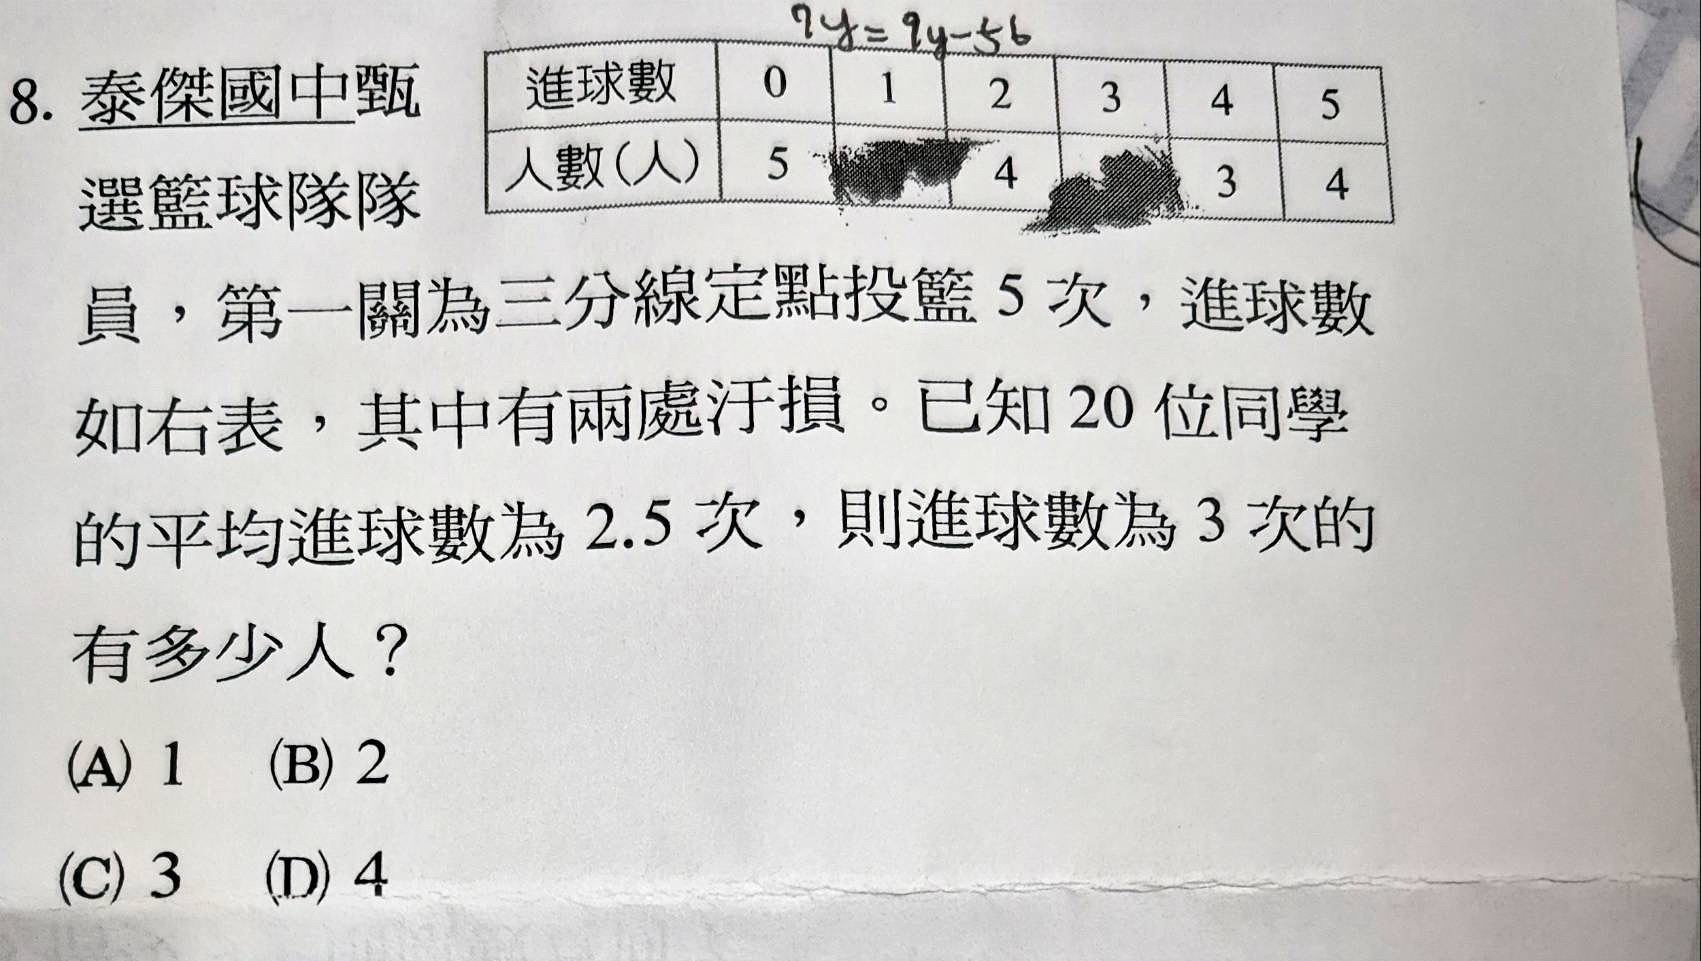 7y=9y-56
8. 泰傑國中甄
選籃球隊隊
進球數 0 1 2 3 4 5
人數(人) 5 4 3 4
員，第一關為三分線定點投籃 5 次，進球數
如右表，其中有兩處汙損。已知 20 位同學
的平均進球數為 2.5 次，則進球數為 3 次的
有多少人？
(A) 1 (B) 2
(C) 3 (D) 4